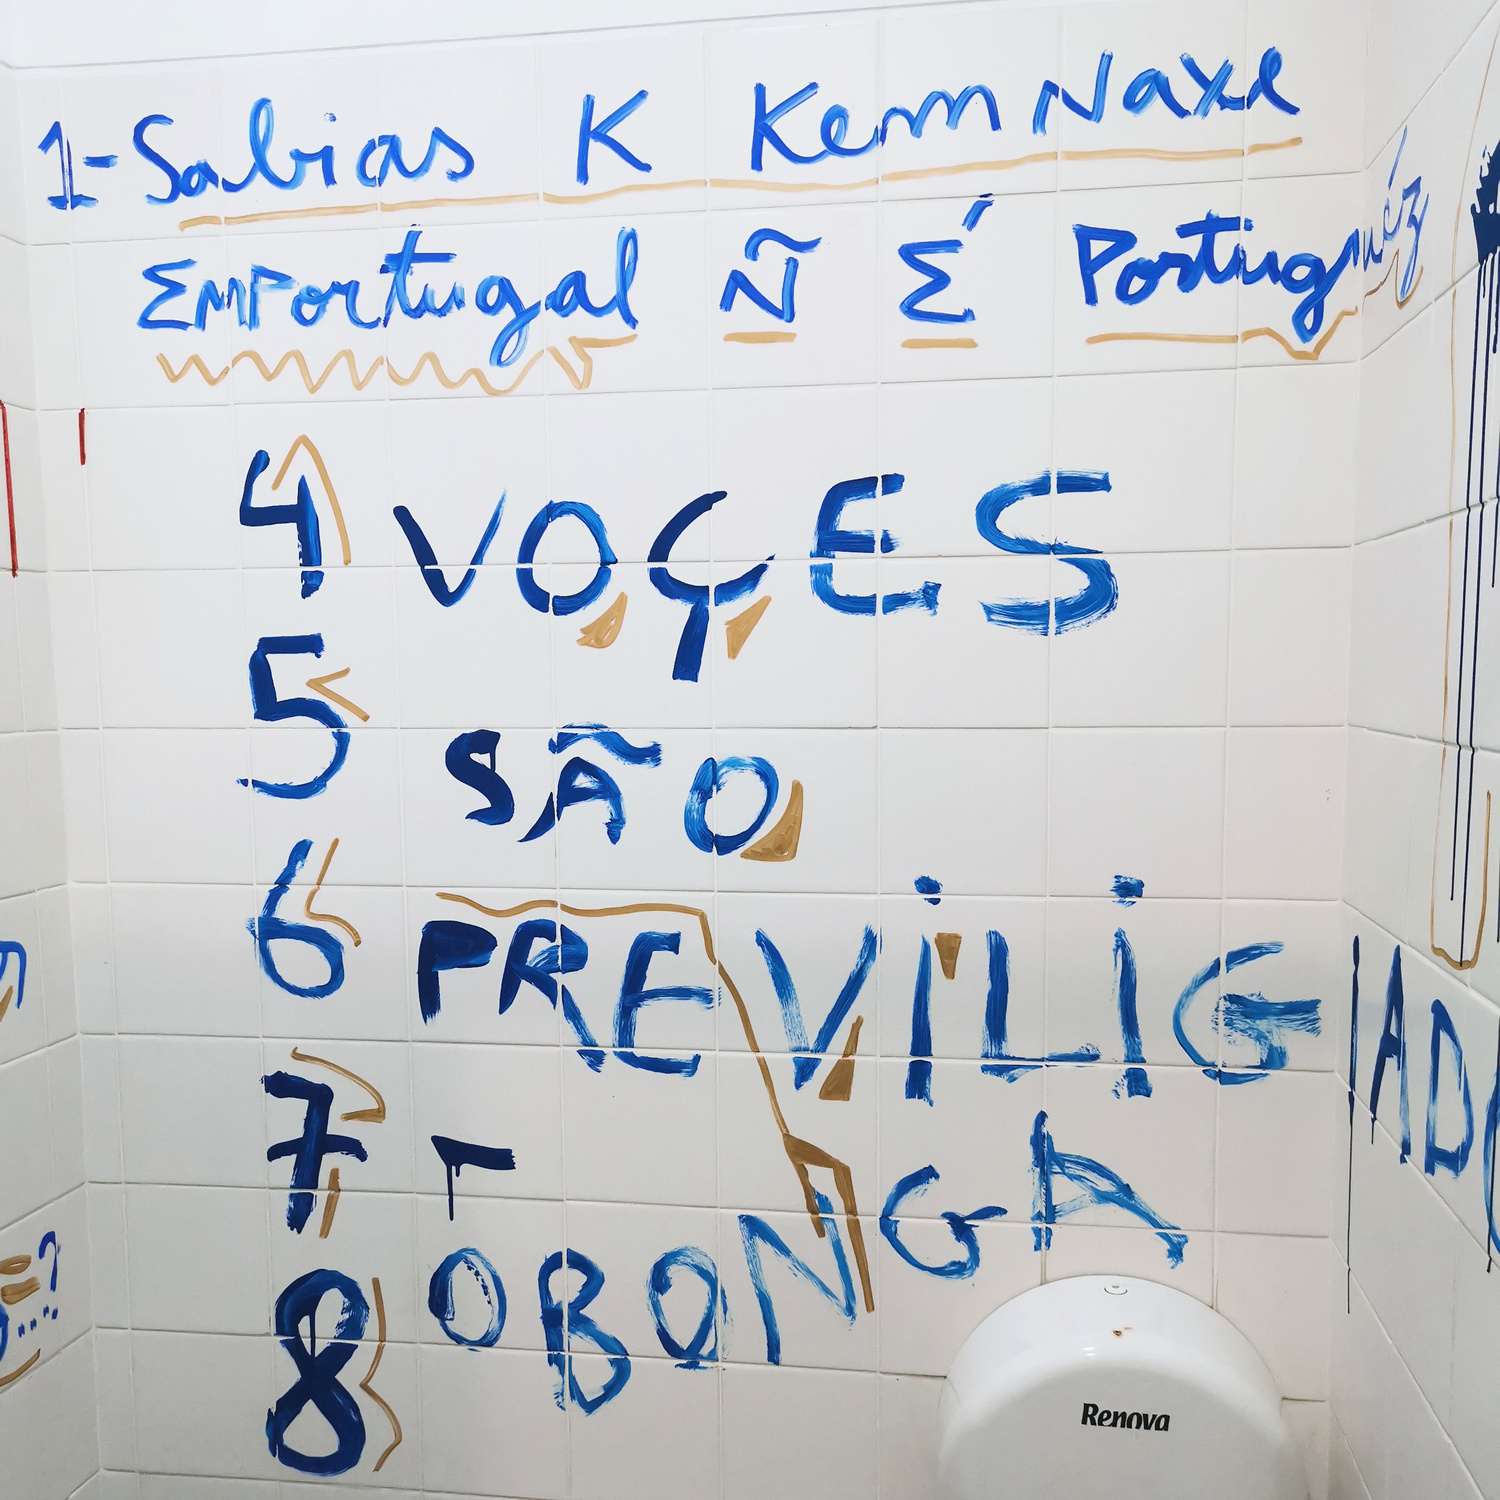 1-Sabias K Kem Naxe
EmPortugal Ñ É Portuguéz
4 VOÇES
5 SÃO
6 PREViLiGIADO
7 -
8 OBONGA
Renova